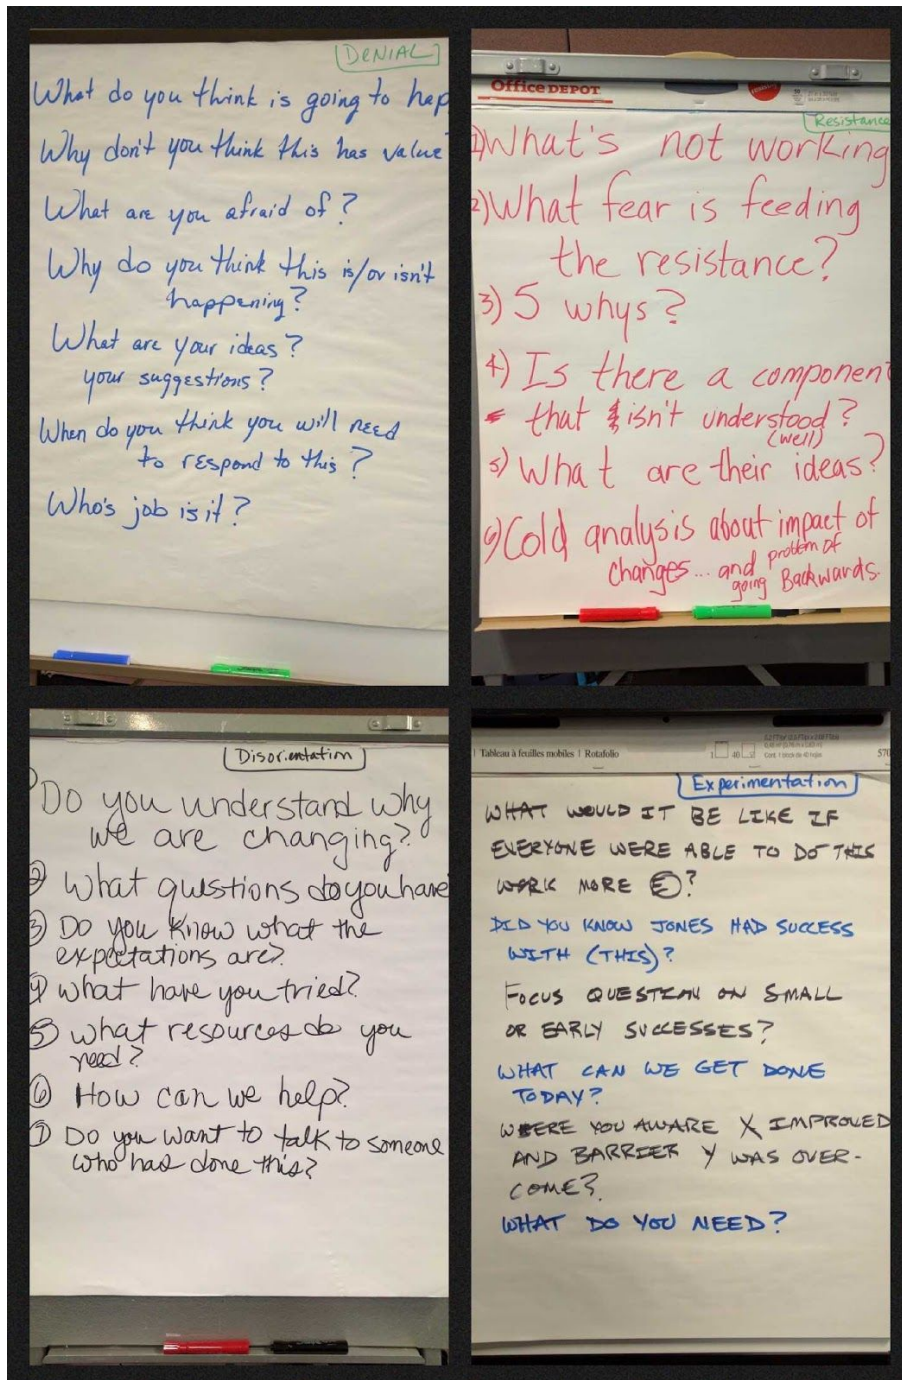 DENIAL
What do you think is going to hap
Why don't you think this has value
What are you afraid of?
Why do you think this is/or isn't
happening?
What are your ideas?
your suggestions?
When do you think you will need
to respond to this?
Who's job is it?
Office DEPOT
Resistance
1) What's not working
2) What fear is feeding
the resistance?
3) 5 whys?
4) Is there a component
that isn't understood?
(well)
5) What are their ideas?
6) Cold analysis about impact of
changes... and problem of
going Backwards.
Disorientation
Do you understand why
we are changing?
2 What questions do you have
3 Do you know what the
expectations are?
4 What have you tried?
5 What resources do you
need?
6 How can we help?
7 Do you want to talk to someone
who has done this?
Tableau à feuilles mobiles | Rotafolio
Experimentation
WHAT WOULD IT BE LIKE IF
EVERYONE WERE ABLE TO DO THIS
WORK MORE E?
DID YOU KNOW JONES HAD SUCCESS
WITH (THIS)?
FOCUS QUESTION ON SMALL
OR EARLY SUCCESSES?
WHAT CAN WE GET DONE
TODAY?
WERE YOU AWARE X IMPROVED
AND BARRIER Y WAS OVER-
COME?
WHAT DO YOU NEED?